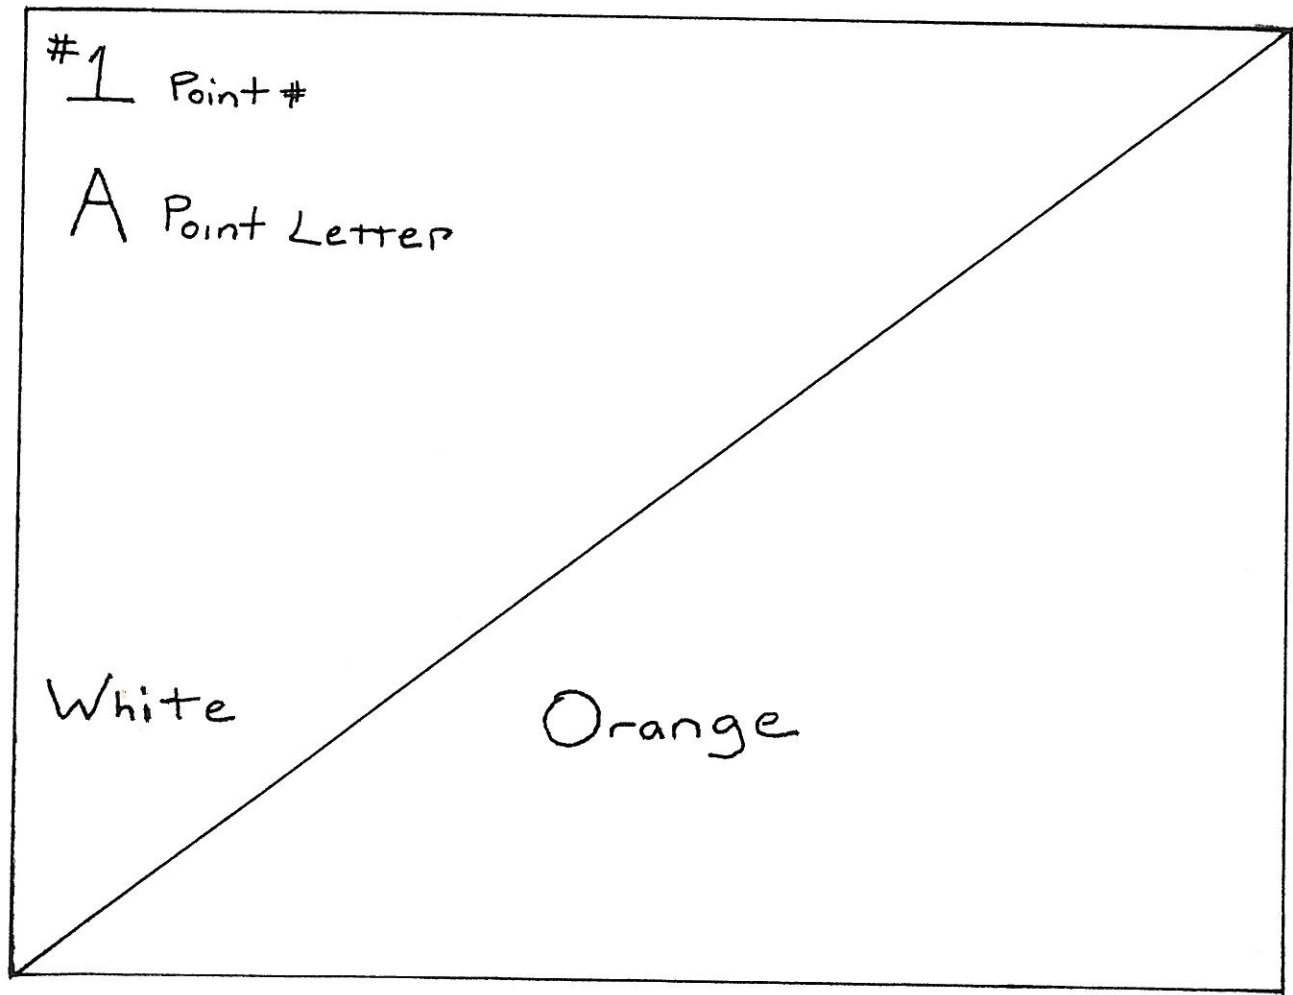 #1 Point #
A Point Letter
White
Orange